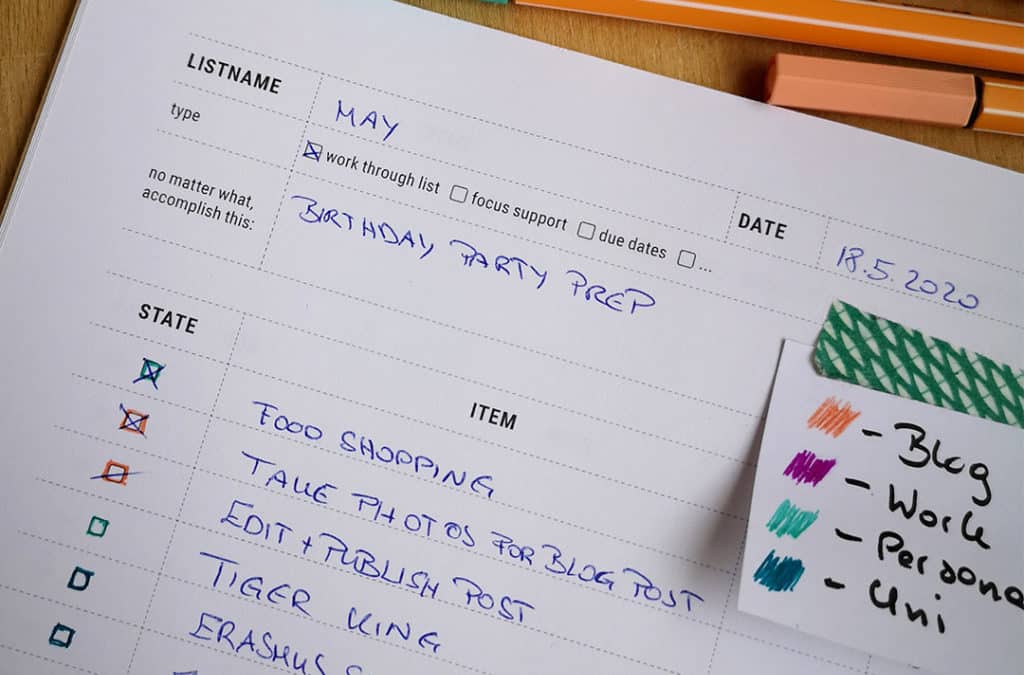 LISTNAME
MAY
type
work through list focus support due dates ...
DATE
18.5.2020
no matter what,
accomplish this:
BIRTHDAY PARTY PREP
STATE
ITEM
FOOD SHOPPING
TAKE PHOTOS FOR BLOG POST
EDIT + PUBLISH POST
TIGER KING
ERASMUS
- Blog
- Work
- Persona
- Uni